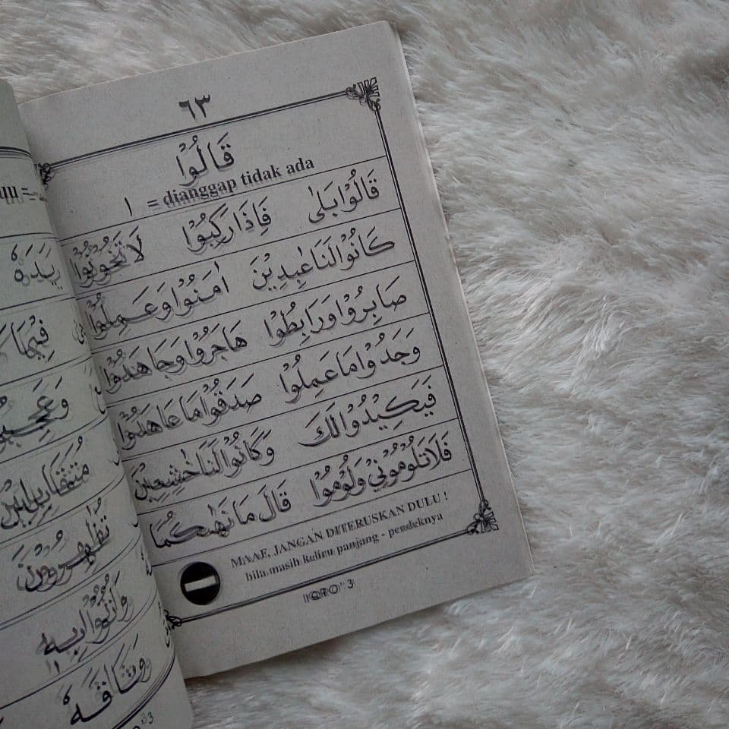 ٦٣
قَالُوْا
ا = dianggap tidak ada
قَالُوْا بَلٰى فَاِذَا رَكِبُوْا لَا تَخُوْنُوْا
كَانُوْا لَنَا عٰبِدِيْنَ اٰمَنُوْا وَعَمِلُوْا
صَابِرُوْا وَرَابِطُوْا هَاجَرُوْا وَجَاهَدُوْا
وَجَدُوْا مَا عَمِلُوْا صَدَقُوْا مَا عَاهَدُوْا
فَيَكِيْدُوْا لَكَ وَكَانُوْا لَنَا خٰشِعِيْنَ
فَلَا تَلُوْمُوْنِيْ وَلُوْمُوْا قَالَ مَا نَهٰىكُمَا
MAAF, JANGAN DITERUSKAN DULU !
bila masih keliru panjang - pendeknya
IQRO' 3
فِيْمَا
تُظْهِرُوْنَ